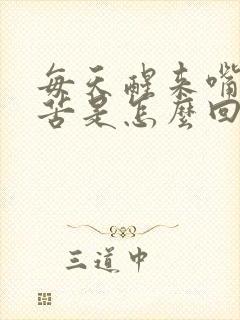 每天醒来嘴
苦是怎麼回
三道中